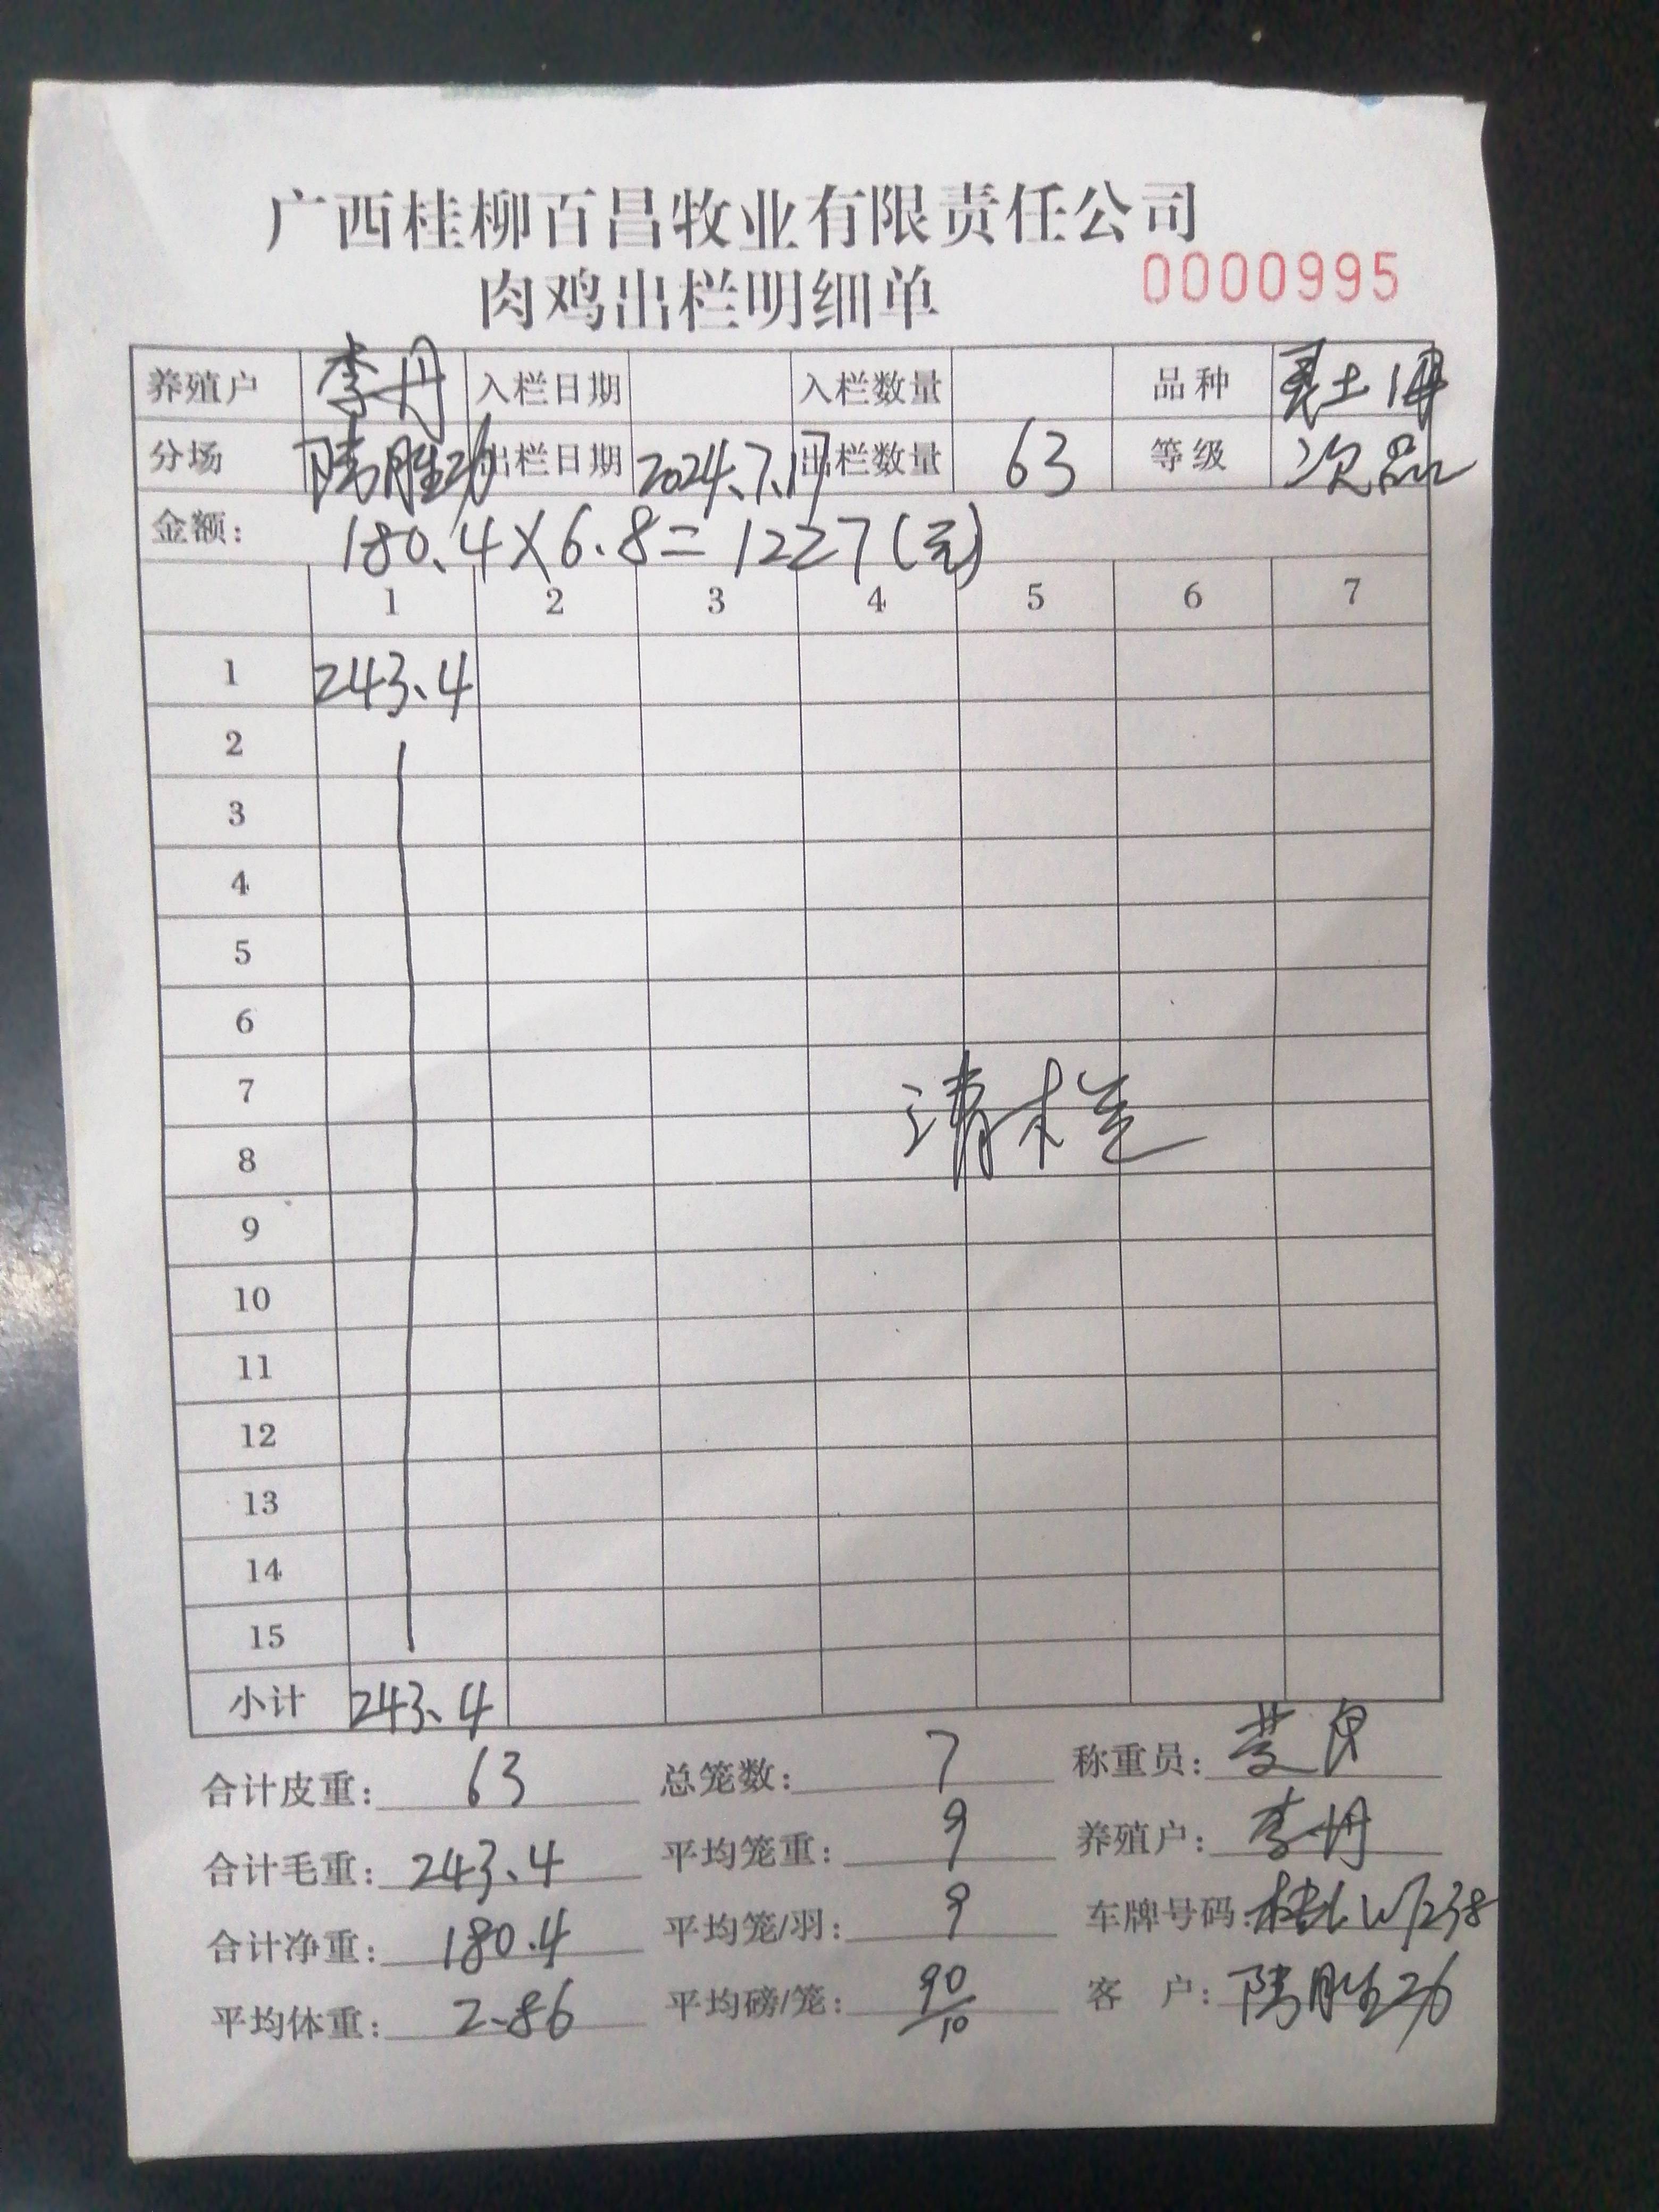 广西桂柳百昌牧业有限责任公司
肉鸡出栏明细单 0000995
养殖户 李丹 入栏日期 入栏数量 品种 土1
分场 陆胜功 出栏日期 2024.7.17 出栏数量 63 等级 次品
金额: 180.4×6.8=1227(元)
1 2 3 4 5 6 7
1 243.4
2
3
4
5
6
7
8
清
9
10
11
12
13
14
15
小计 243.4
合计皮重: 63 总笼数: 7 称重员:
合计毛重: 243.4 平均笼重: 9 养殖户: 李丹
合计净重: 180.4 平均笼/羽: 9 车牌号码: 桂L W7238
平均体重: 2.86 平均磅/笼: 90/10 客户: 陆胜功